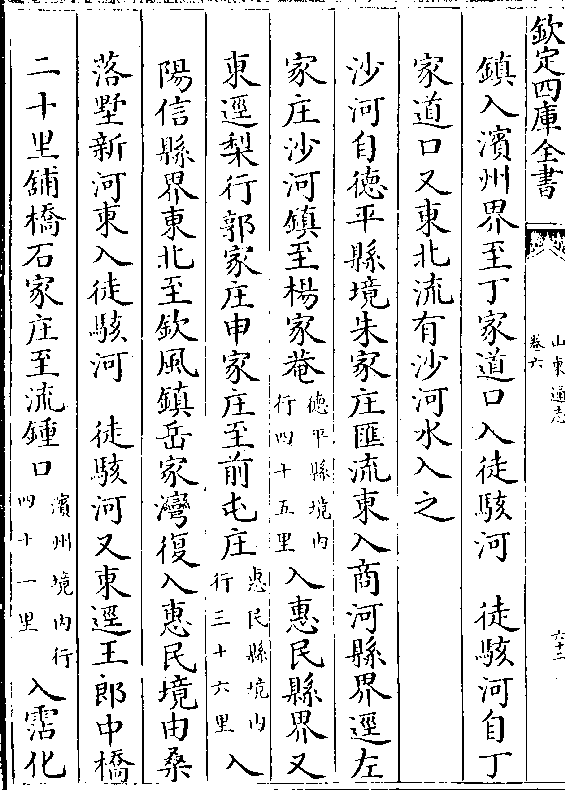 欽定四庫全書
山東通志
卷六
六十二
鎮入濱州界至丁家道口入徒駭河　徒駭河自丁
家道口又東北流有沙河水入之
沙河自德平縣境朱家庄匯流東入商河縣界逕左
家庄沙河鎮至楊家菴德平縣境内行四十五里入惠民縣界又
東逕梨行郭家庄申家庄至前屯庄惠民縣境内行三十六里入
陽信縣界東北至欽風鎮岳家灣復入惠民境由桑
落墅新河東入徒駭河　徒駭河又東逕王郎中橋
二十里鋪橋石家庄至流鍾口濱州境内行四十一里入霑化